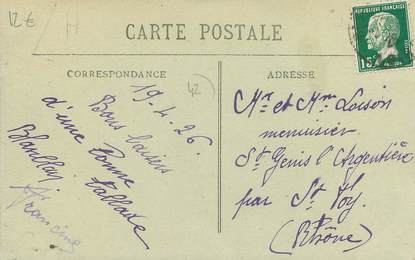 12€
42
CARTE POSTALE
RÉPUBLIQUE FRANÇAISE
15c
CORRESPONDANCE
19-4-26.
Bons baisers
d'une bonne
Francine
ADRESSE
Mr et Mm Loison
menuisier
St Genis l'Argentière
par St Foy
(Rhône)